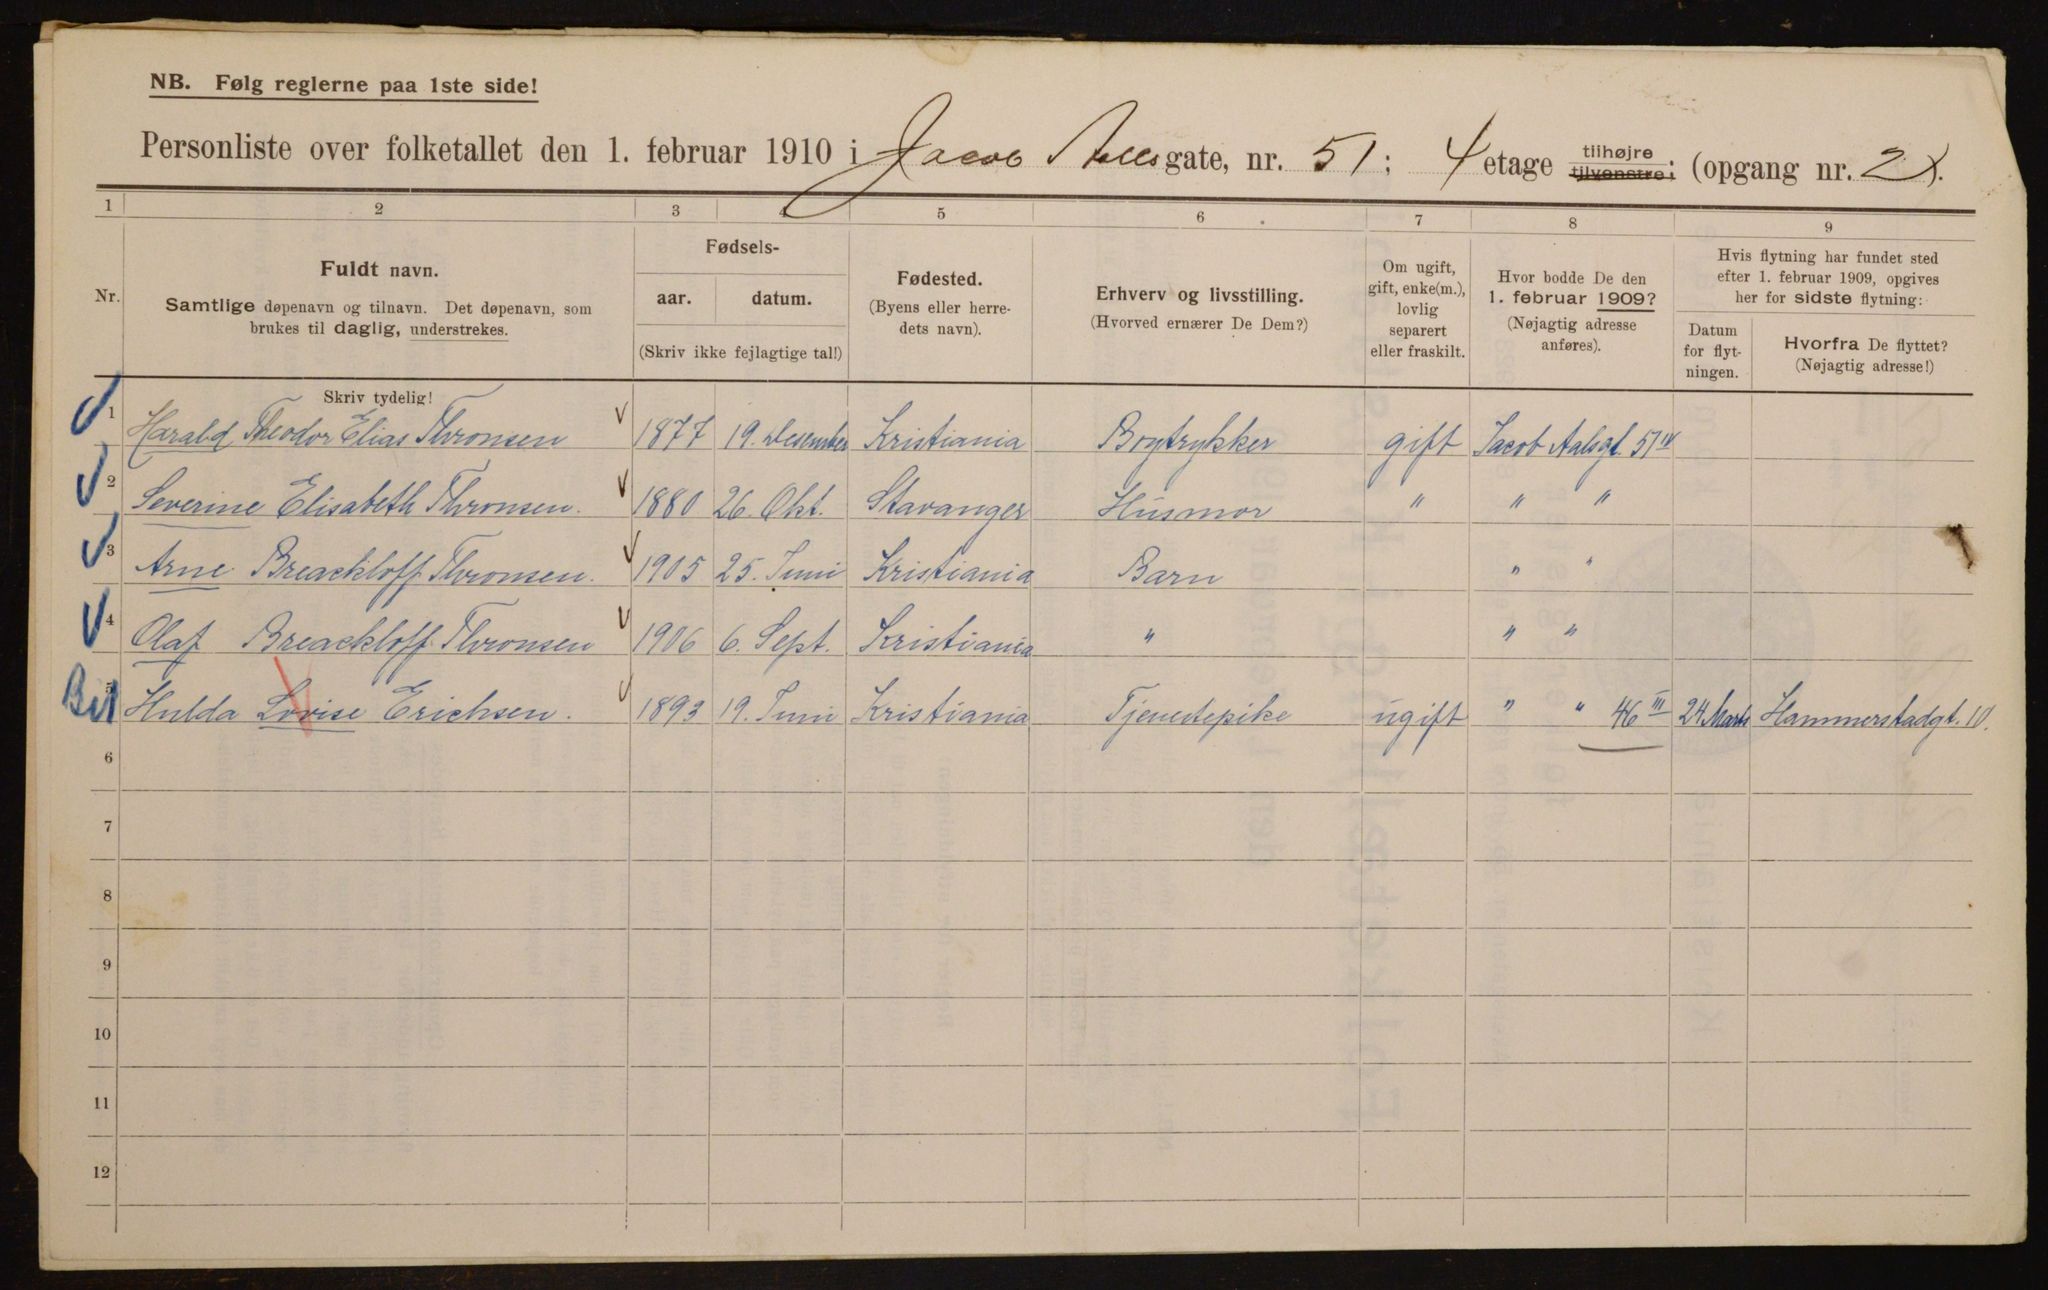 NB. Følg reglerne paa 1ste side!
Personliste over folketallet den 1. februar 1910 i Jacob Aallsgate, nr. 51; 4 etage tilhøjre tilvenstre; (opgang nr. 2).
1 2 3 4 5 6 7 8 9
Nr.
Fuldt navn.
Samtlige døpenavn og tilnavn. Det døpenavn, som
brukes til daglig, understrekes.
Fødsels-
aar. datum.
(Skriv ikke fejlagtige tal!)
Fødested.
(Byens eller herre-
dets navn).
Erhverv og livsstilling.
(Hvorved ernærer De Dem?)
Om ugift,
gift, enke(m.),
lovlig
separert
eller fraskilt.
Hvor bodde De den
1. februar 1909?
(Nøjagtig adresse
anføres).
Hvis flytning har fundet sted
efter 1. februar 1909, opgives
her for sidste flytning:
Datum
for flyt-
ningen.
Hvorfra De flyttet?
(Nøjagtig adresse!)
Skriv tydelig!
1 Harald Theodor Elias Thronsen 1877 19. Desember Kristiania Bogtrykker gift Jacob Aalsgt. 51 IV
2 Severine Elisabeth Thronsen. 1880 26. Okt. Stavanger Husmor " " "
3 Arne Breackloff Thronsen. 1905 25. Juni Kristiania Barn " "
4 Olaf Breackloff Thronsen 1906 6. Sept. Kristiania " " "
5 Hulda Lovise Erichsen. 1893 19. Juni Kristiania Tjenestepike ugift " " 46 III 24 Marts Hammerstadgt. 10.
6
7
8
9
10
11
12